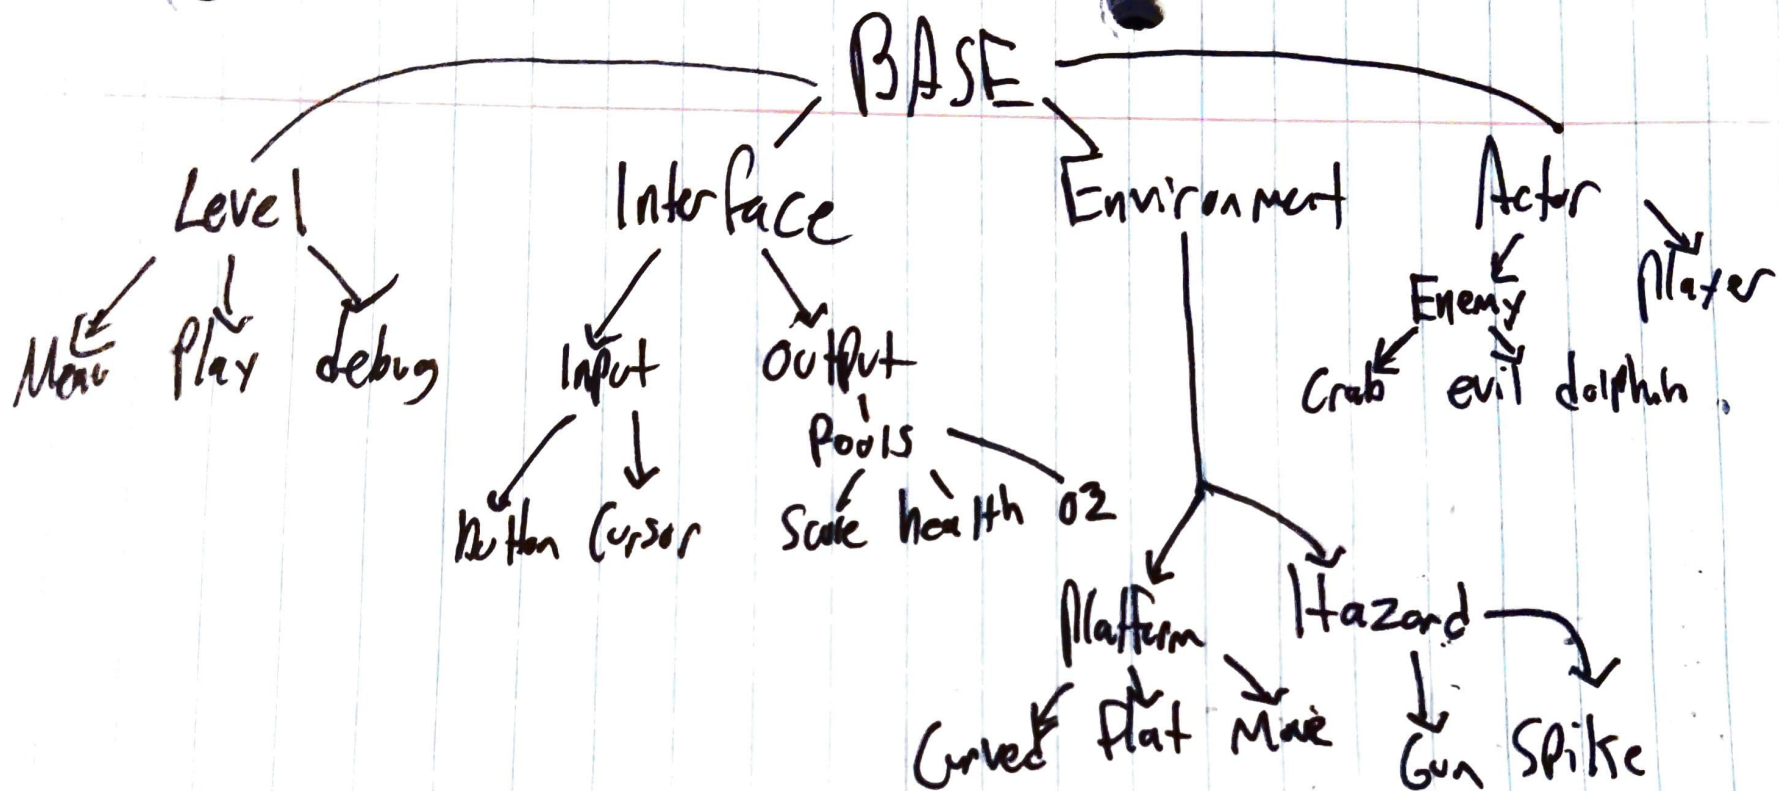 BASE
Level Interface Environment Actor
Enemy Player
Menu Play debug Input Output Crab evil dolphin
Pools
Button Cursor Score health O2
Platform Hazard
Curved flat Move Gun Spike